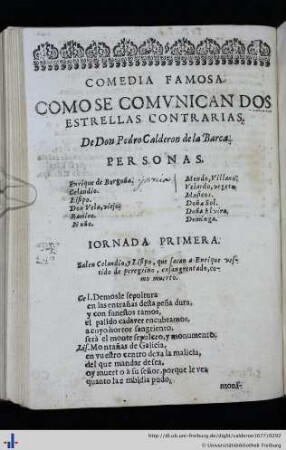 COMEDIA FAMOSA.
COMO SE COMVNICAN DOS
ESTRELLAS CONTRARIAS.
De Don Pedro Calderon de la Barca.
PERSONAS.
Enrique de Borgoña.
Celandio.
Lispo.
Don Vela, viejo.
Ramiro.
Nuño.
Mendo, Villano.
Velardo, vegete.
Musicos.
Doña Sol.
Doña Elvira.
Dominga.
IORNADA PRIMERA.
Salen Celandio, y Lispo, que sacan a Enrique ves-
tido de peregrino, ensangrentado, co-
mo muerto.
Cel. Demosle sepultura
en las entrañas desta peña dura,
y con funestos ramos,
el palido cadaver encubramos,
a cuyo horror sangriento,
serà el monte sepulcro, y monumento.
Lis. Montañas de Galicia,
en vuestro centro dexa la malicia,
del que mandar desea,
oy muerto a su señor, porque se vea
quanto la embidia pudo,
mons-
http://dl.ub.uni-freiburg.de/diglit/calderon1677/0292
© Universitätsbibliothek Freiburg